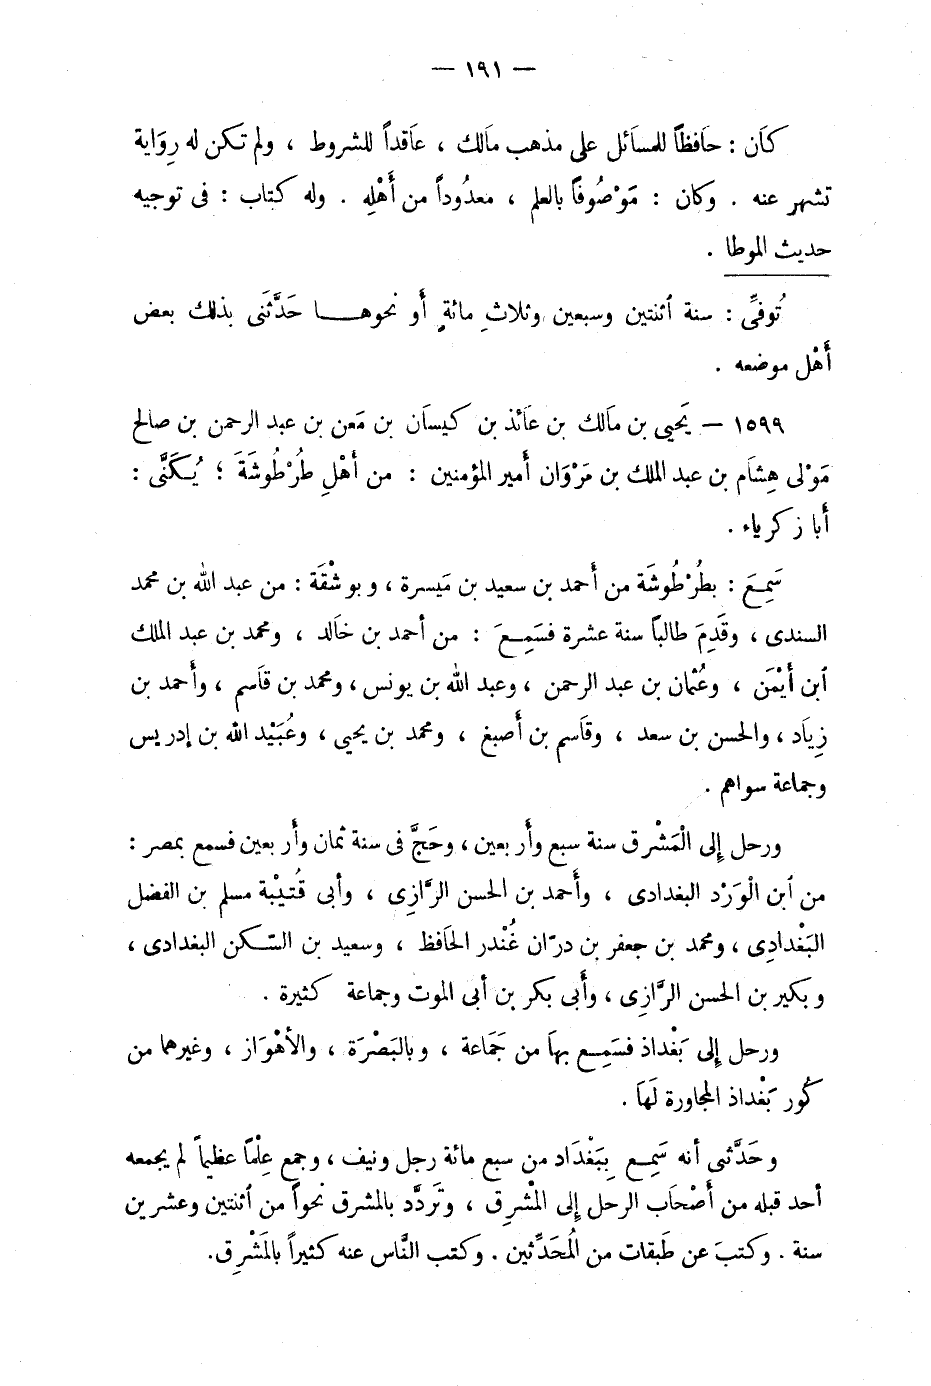 — ١٩١ —
كَان : حَافظاً للمسَائل على مذهب مَالك ، عَاقداً للشروط ، ولم تكن له رِوَاية
تشهر عنه . وكان : مَوْصُوفاً بالعلم ، معدُوداً من أَهْلِه . وله كتاب : فى توجيه
حديث الموطا .
تُوفِّى : سنة اثنتين وسبعين وثلاثِ مائةٍ أَو نحوهـا حَدَّثَنى بذلك بعض
أَهْل موضعه .
١٥٩٩ — يَحيى بن مَالك بن عَائذ بن كيسَان بن مَعن بن عبد الرحمن بن صالح
مَوْلى هِشَام بن عبد الملك بن مَرْوَان أَمير المؤمنين : من أهْلِ طُرْطُوشَةَ ؛ يُـكَنَّى :
أَبا زكرياء .
سَمِـعَ : بطُرْطُوشَة من أَحمد بن سعيد بن مَيسرة ، وبوشْقَة : من عبد الله بن محمد
السندى ، وقَدِمَ طالباً سنة عشرة فسَمِـعَ : من أحمد بن خَالد ، ومحمد بن عبد الملك
ابن أَيْمَن ، وعُثْمان بن عبد الرحمن ، وعبد الله بن يونس ، ومحمد بن قَاسم ، وأَحمد بن
زِيَاد ، والحسن بن سعد ، وقَاسم بن أَصبغ ، ومحمد بن يحيى ، وعُبَيْد الله بن إدريس
وجماعة سواهم .
ورحل إِلى الْمَشْرق سنة سبع وأَربعين ، وحَجَّ فى سنة ثمان وأَربعين فسمع بمصر :
من ابن الْوَرْد البغدادى ، وأَحمد بن الحسن الرَّازِى ، وأَبى قُتَيْبة مسلم بن الفضل
البَغْدادِى ، ومحمد بن جعفر بن درّان غُنْدر الحَافظ ، وسعيد بن السّـكن البغدادى ،
وبكير بن الحسن الرَّازِى ، وأَبى بكر بن أَبى الموت وجماعة كثيرة .
ورحل إِلى بَغْداذ فسَمِـع بهَا من جَمَاعة ، وبالبَصْرَة ، والأهْوَاز ، وغيرهما من
كُور بَغْداذ المجاورة لَهَا .
وحَدَّثنى أنه سَمِـع بِبَغْدَاد من سبع مائة رجل ونيف ، وجمع عِلْماً عظيماً لم يجمعه
أحد قبله من أَصْحَاب الرحل إِلى المْشرِق ، وتَردَّد بالمشرق نحواً من اثنتين وعشرين
سنة . وكتبَ عن طَبقات من المُحَدِّثين . وكتب النَّاس عنه كثيراً بالمَشْرِق .